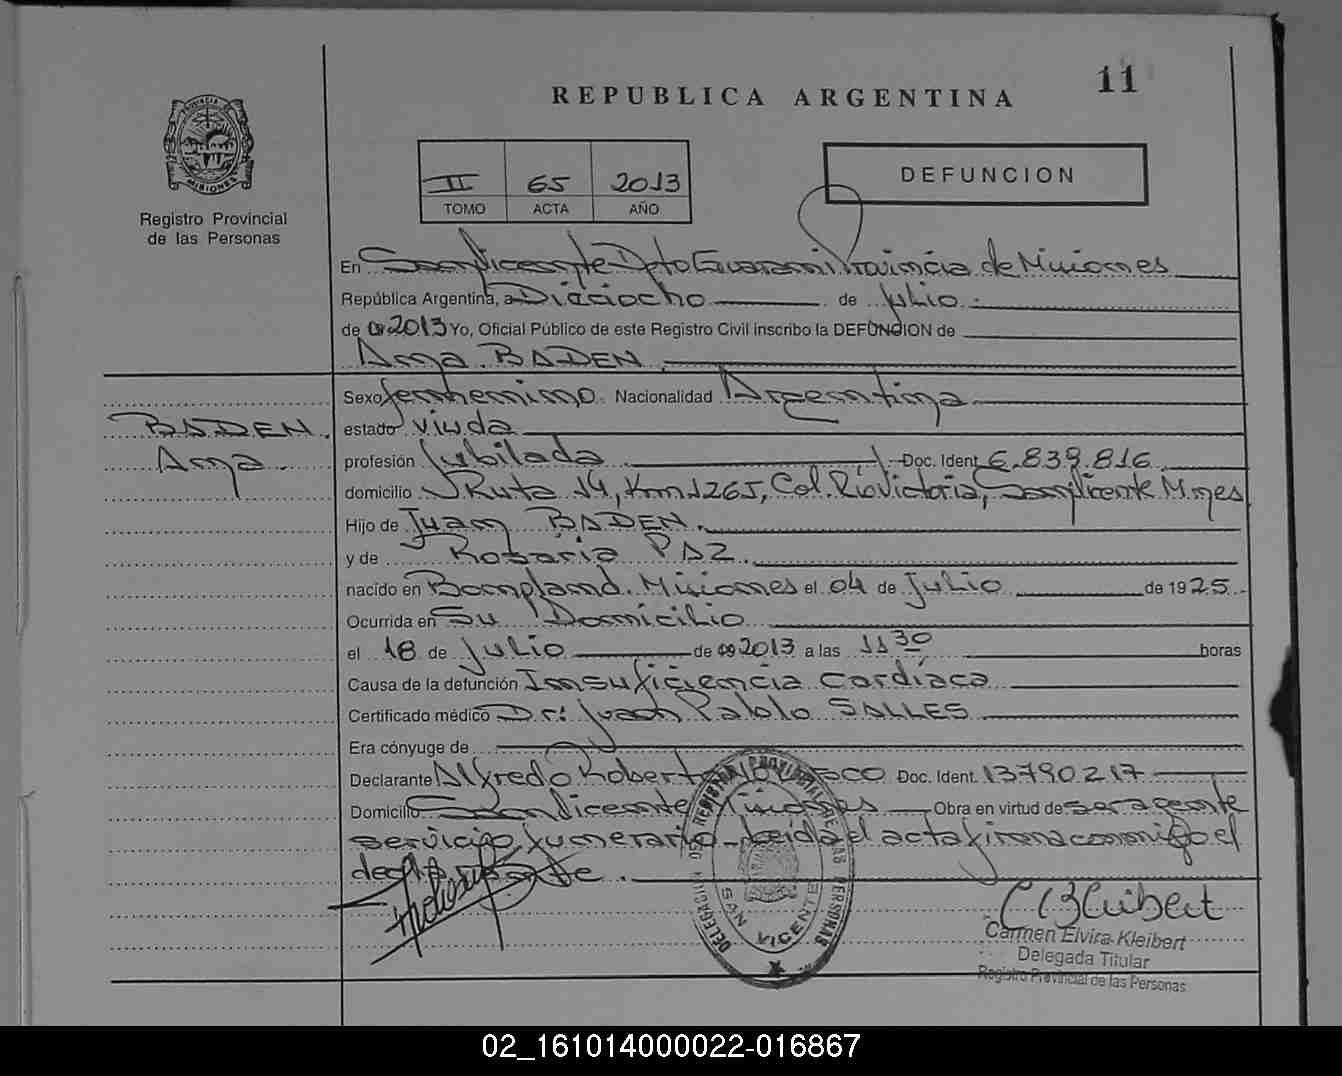 11
REPUBLICA ARGENTINA
PROVINCIA DE
MISIONES
Registro Provincial
de las Personas
II 65 2013
TOMO ACTA AÑO
DEFUNCION
En San Vicente Dpto Guarani Provincia de Misiones
República Argentina, a Dieciocho de Julio
de 2013 Yo, Oficial Público de este Registro Civil inscribo la DEFUNCION de
Ana BADEN
Sexo femenino Nacionalidad Argentina
BADEN
Ana
estado viuda
profesión Jubilada Doc. Ident 6.839.816
domicilio Ruta 14, Km 1265, Col. Rio Victoria, San Vicente Mnes
Hijo de Juan BADEN
y de Rosaria PAZ
nacido en Bonpland Misiones el 04 de Julio de 1925
Ocurrida en Su Domicilio
el 18 de Julio de 2013 a las 11 30 horas
Causa de la defunción Insuficiencia cardíaca
Certificado médico Dr: Juan Pablo SALLES
Era cónyuge de
Declarante Alfredo Roberto Doc. Ident. 13790217
Domicilio San Vicente Misiones Obra en virtud de ser agente
servicio funerario leida el acta firma conmigo el
declarante.
DELEGACION DE REGISTRO PROVINCIAL DE LAS PERSONAS
SAN VICENTE
Carmen Elvira Kleibert
Delegada Titular
Registro Provincial de las Personas
02_161014000022-016867